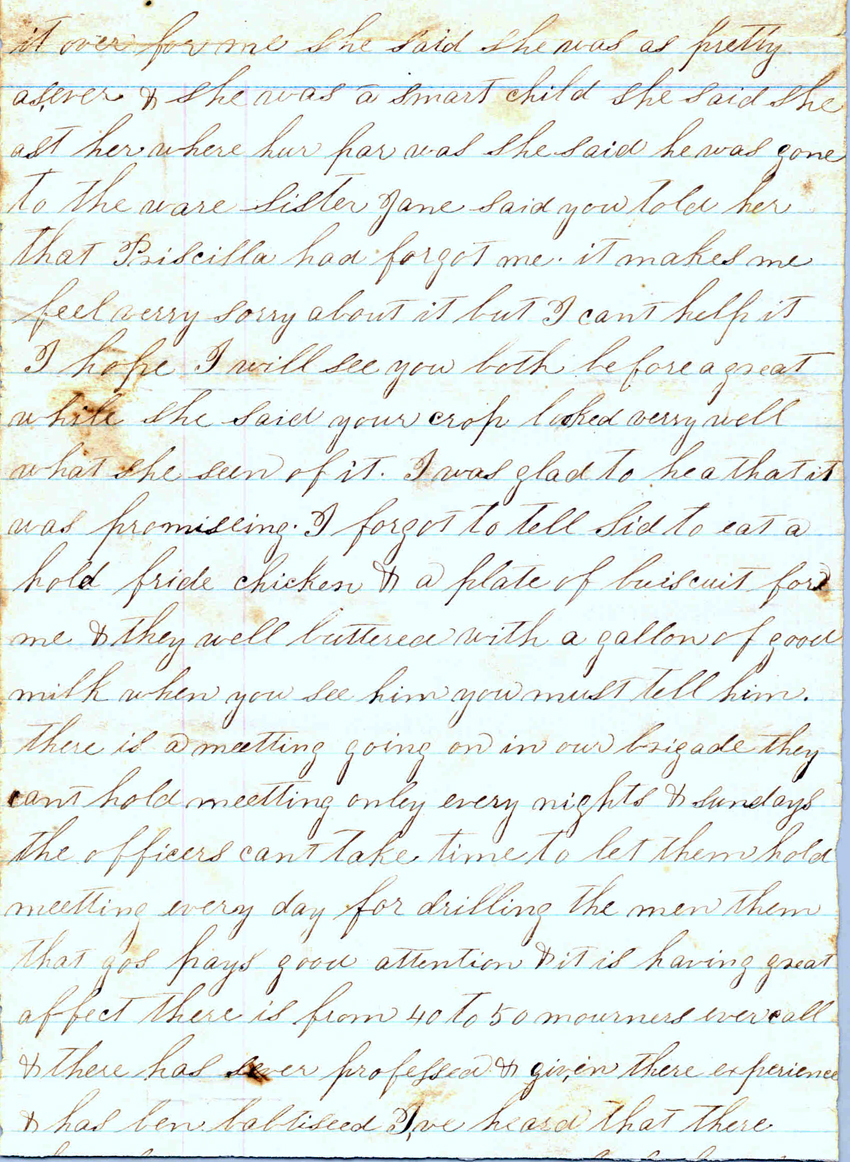 it over for me she said she was as pretty
as ever & she was a smart child she said she
ast her where hur par was she said he was gone
to the ware sister Jane said you told her
that Priscilla had forgot me. it makes me
feel verry sorry about it but I cant help it
I hope I will see you both before a great
while she said your crop looked verry well
what she seen of it. I was glad to hea that it
was promiseing. I forgot to tell Sid to eat a
hold fride chicken & a plate of buiscuit for
me & they well buttered with a gallon of good
milk when you see him you must tell him.
there is a meetting going on in our brigade they
cant hold meetting onley every nights & sundays
the officers cant take time to let them hold
meetting every day for drilling the men them
that gos pays good attention & it is having great
affect there is from 40 to 50 mourners ever call
& there has professed & given there experience
& has ben babtiseed I,ve heard that there